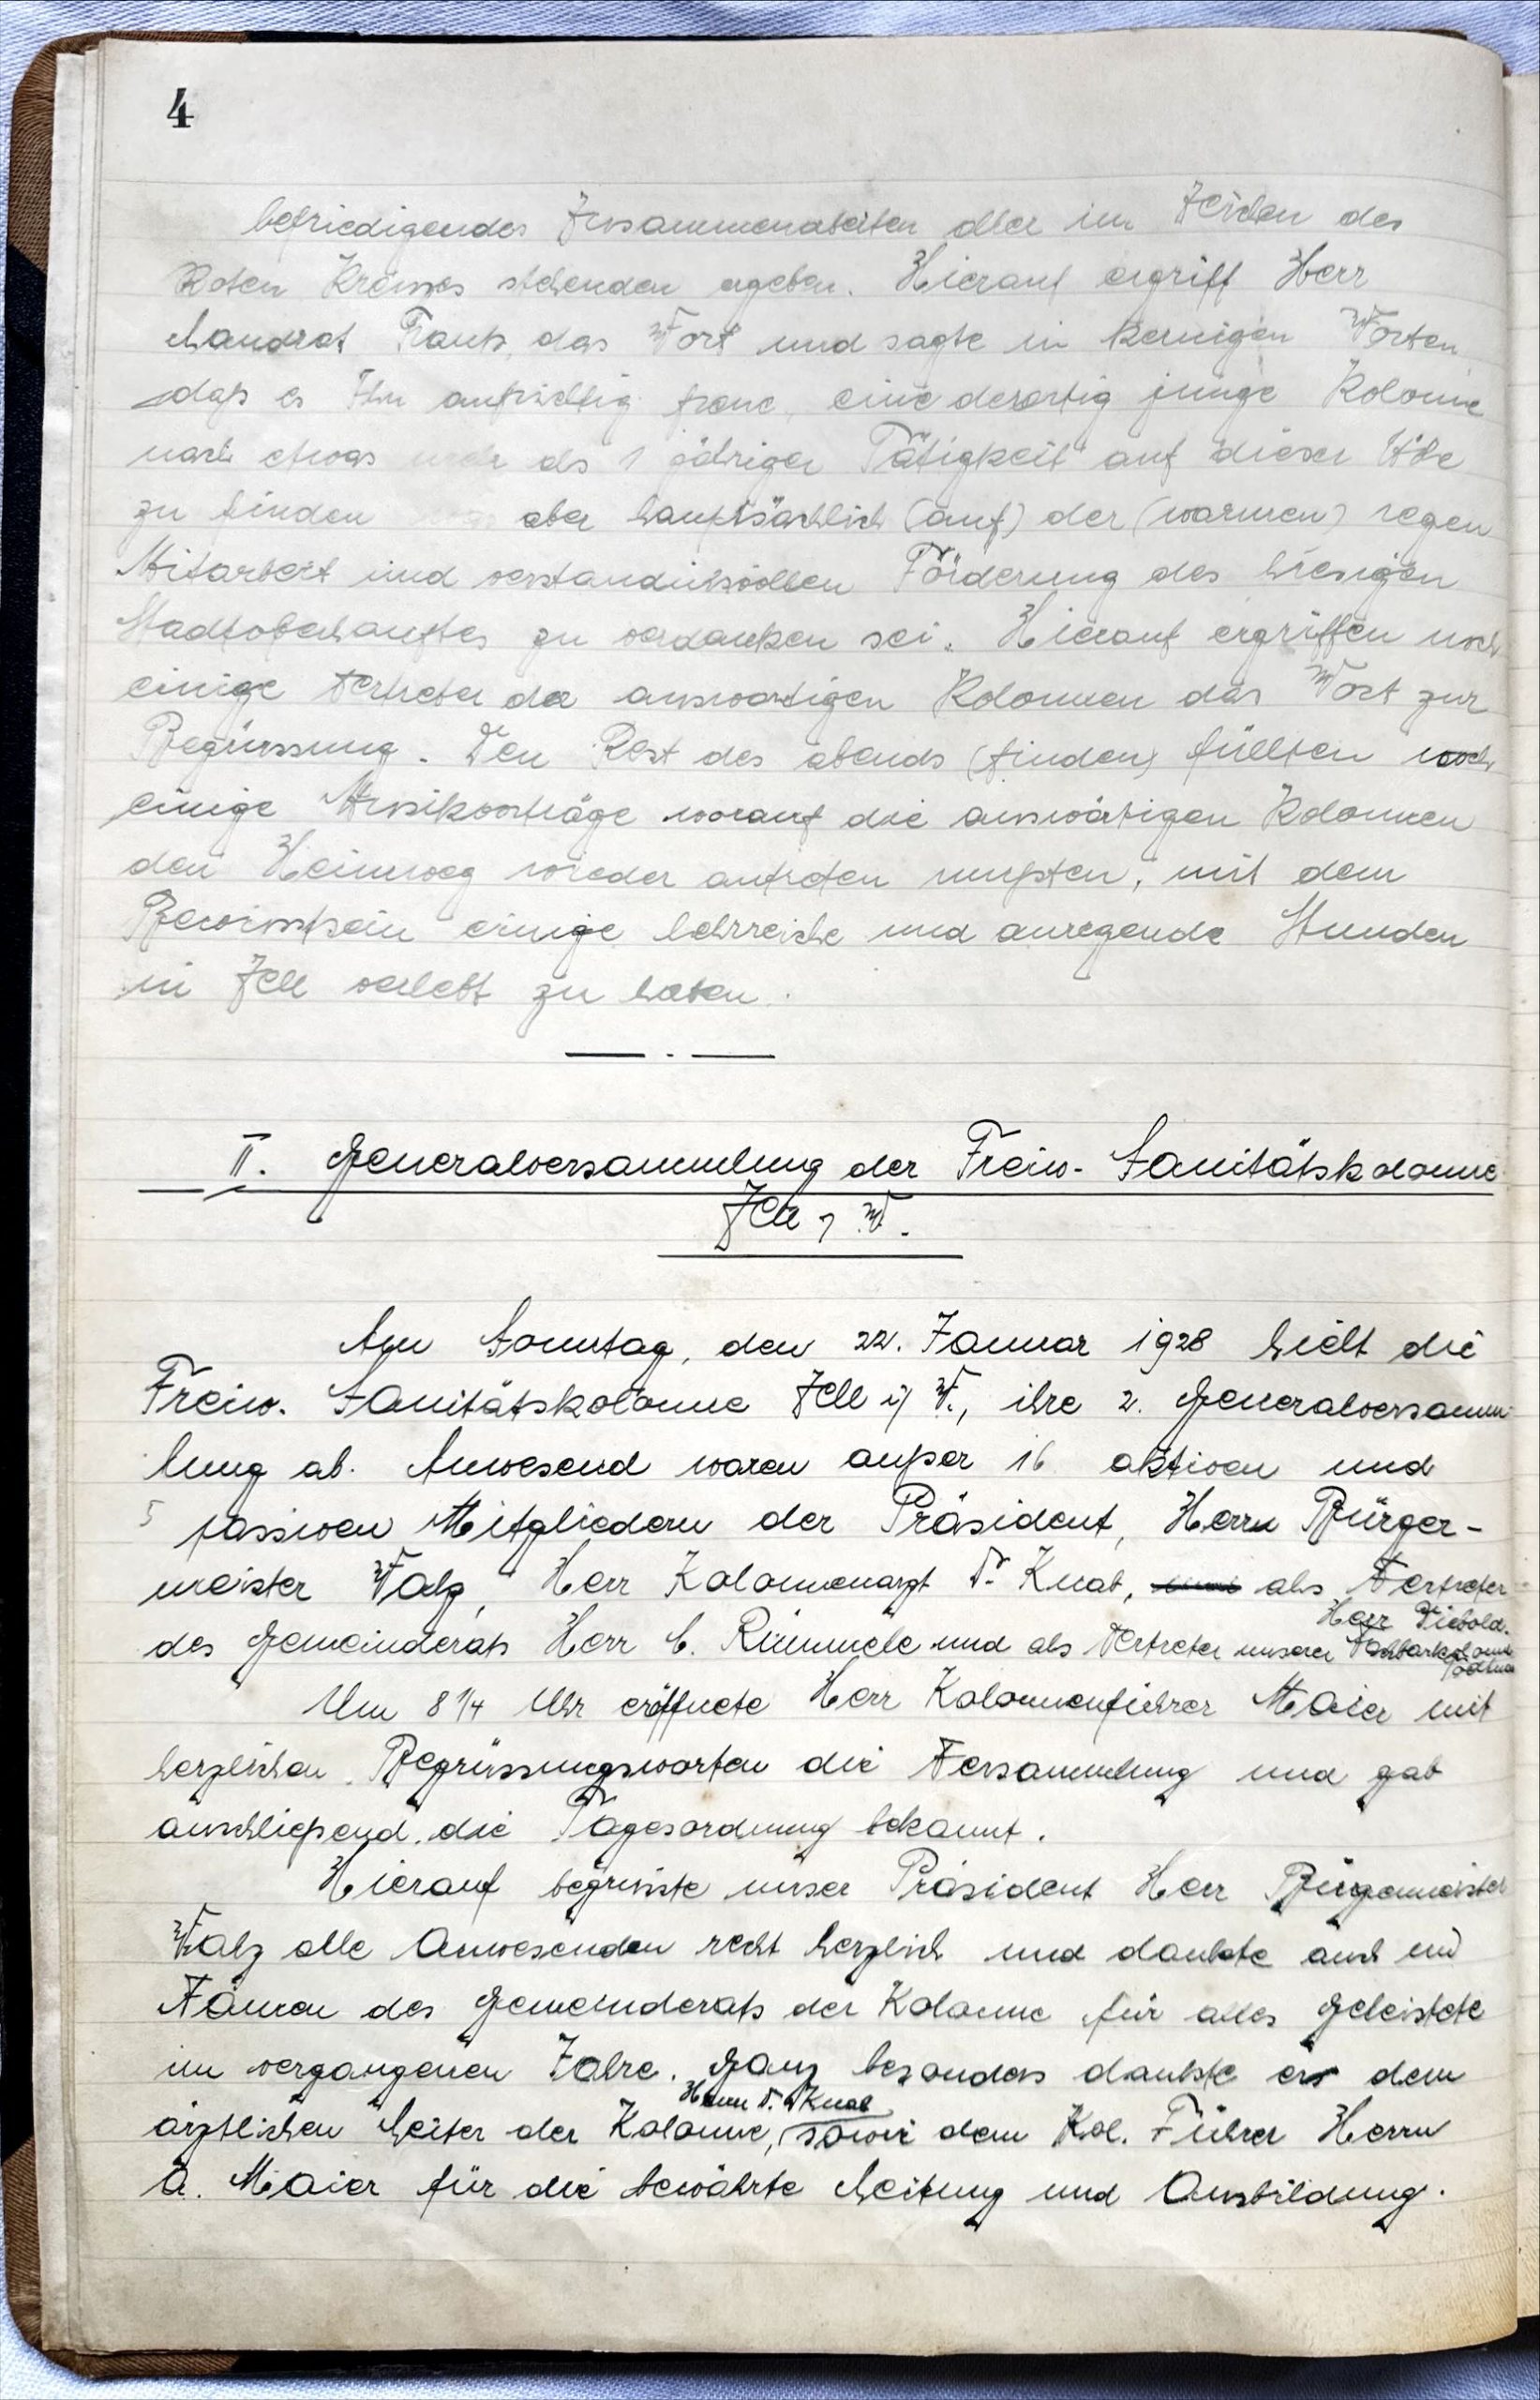 4
befriedigendes Zusammenarbeiten aller im Zeichen des
Roten Kreuzes stehenden ergeben. Hierauf ergriff Herr
Landrat das Wort und sagte in kernigen Worten
daß es Ihn aufrichtig freue, eine derartig junge Kolonne
nach etwas mehr als 1 jähriger Tätigkeit auf dieser Höhe
zu finden aber hauptsächlich (auf) der (warmen) regen
Mitarbeit und verständnisvollen Förderung des hiesigen
Stadtoberhauptes zu verdanken sei. Hierauf ergriffen noch
einige Vertreter der auswärtigen Kolonnen das Wort zur
Begrüssung. Den Rest des abends (finden) füllten noch
einige Musikvorträge worauf die auswärtigen Kolonnen
den Heimweg wieder antreten mußten, mit dem
Bewußtsein einige lehrreiche und anregende Stunden
in Zell verlebt zu haben.
II. Generalversammlung der Freiw. Sanitätskolonne
Zell i/ W.
Am Sonntag, den 22. Januar 1928 hielt die
Freiw. Sanitätskolonne Zell i/ W., ihre 2. Generalversamm-
lung ab. Anwesend waren außer 16 aktiven und
5 passiven Mitgliedern der Präsident, Herrn Bürger-
meister Walz, Herr Kolonnenarzt Dr. Knab, als Vertreter
des Gemeinderats Herr C. Rümmele und als Vertreter unserer Nachbarkolonne Todtnau Herr Diebold.
Um 8 1/4 Uhr eröffnete Herr Kolonnenführer Maier mit
herzlichen Begrüssungsworten die Versammlung und gab
anschließend die Tagesordnung bekannt.
Hierauf begrüsste unser Präsident Herr Bürgermeister
Walz alle Anwesenden recht herzlich und dankte auch im
Namen des Gemeinderats der Kolonne für alles Geleistete
im vergangenen Jahre. Ganz besonders dankte er dem
ärztlichen Leiter der Kolonne, Herrn Dr. Knab sowie dem Kol. Führer Herrn
A. Maier für die bewährte Leitung und Ausbildung.